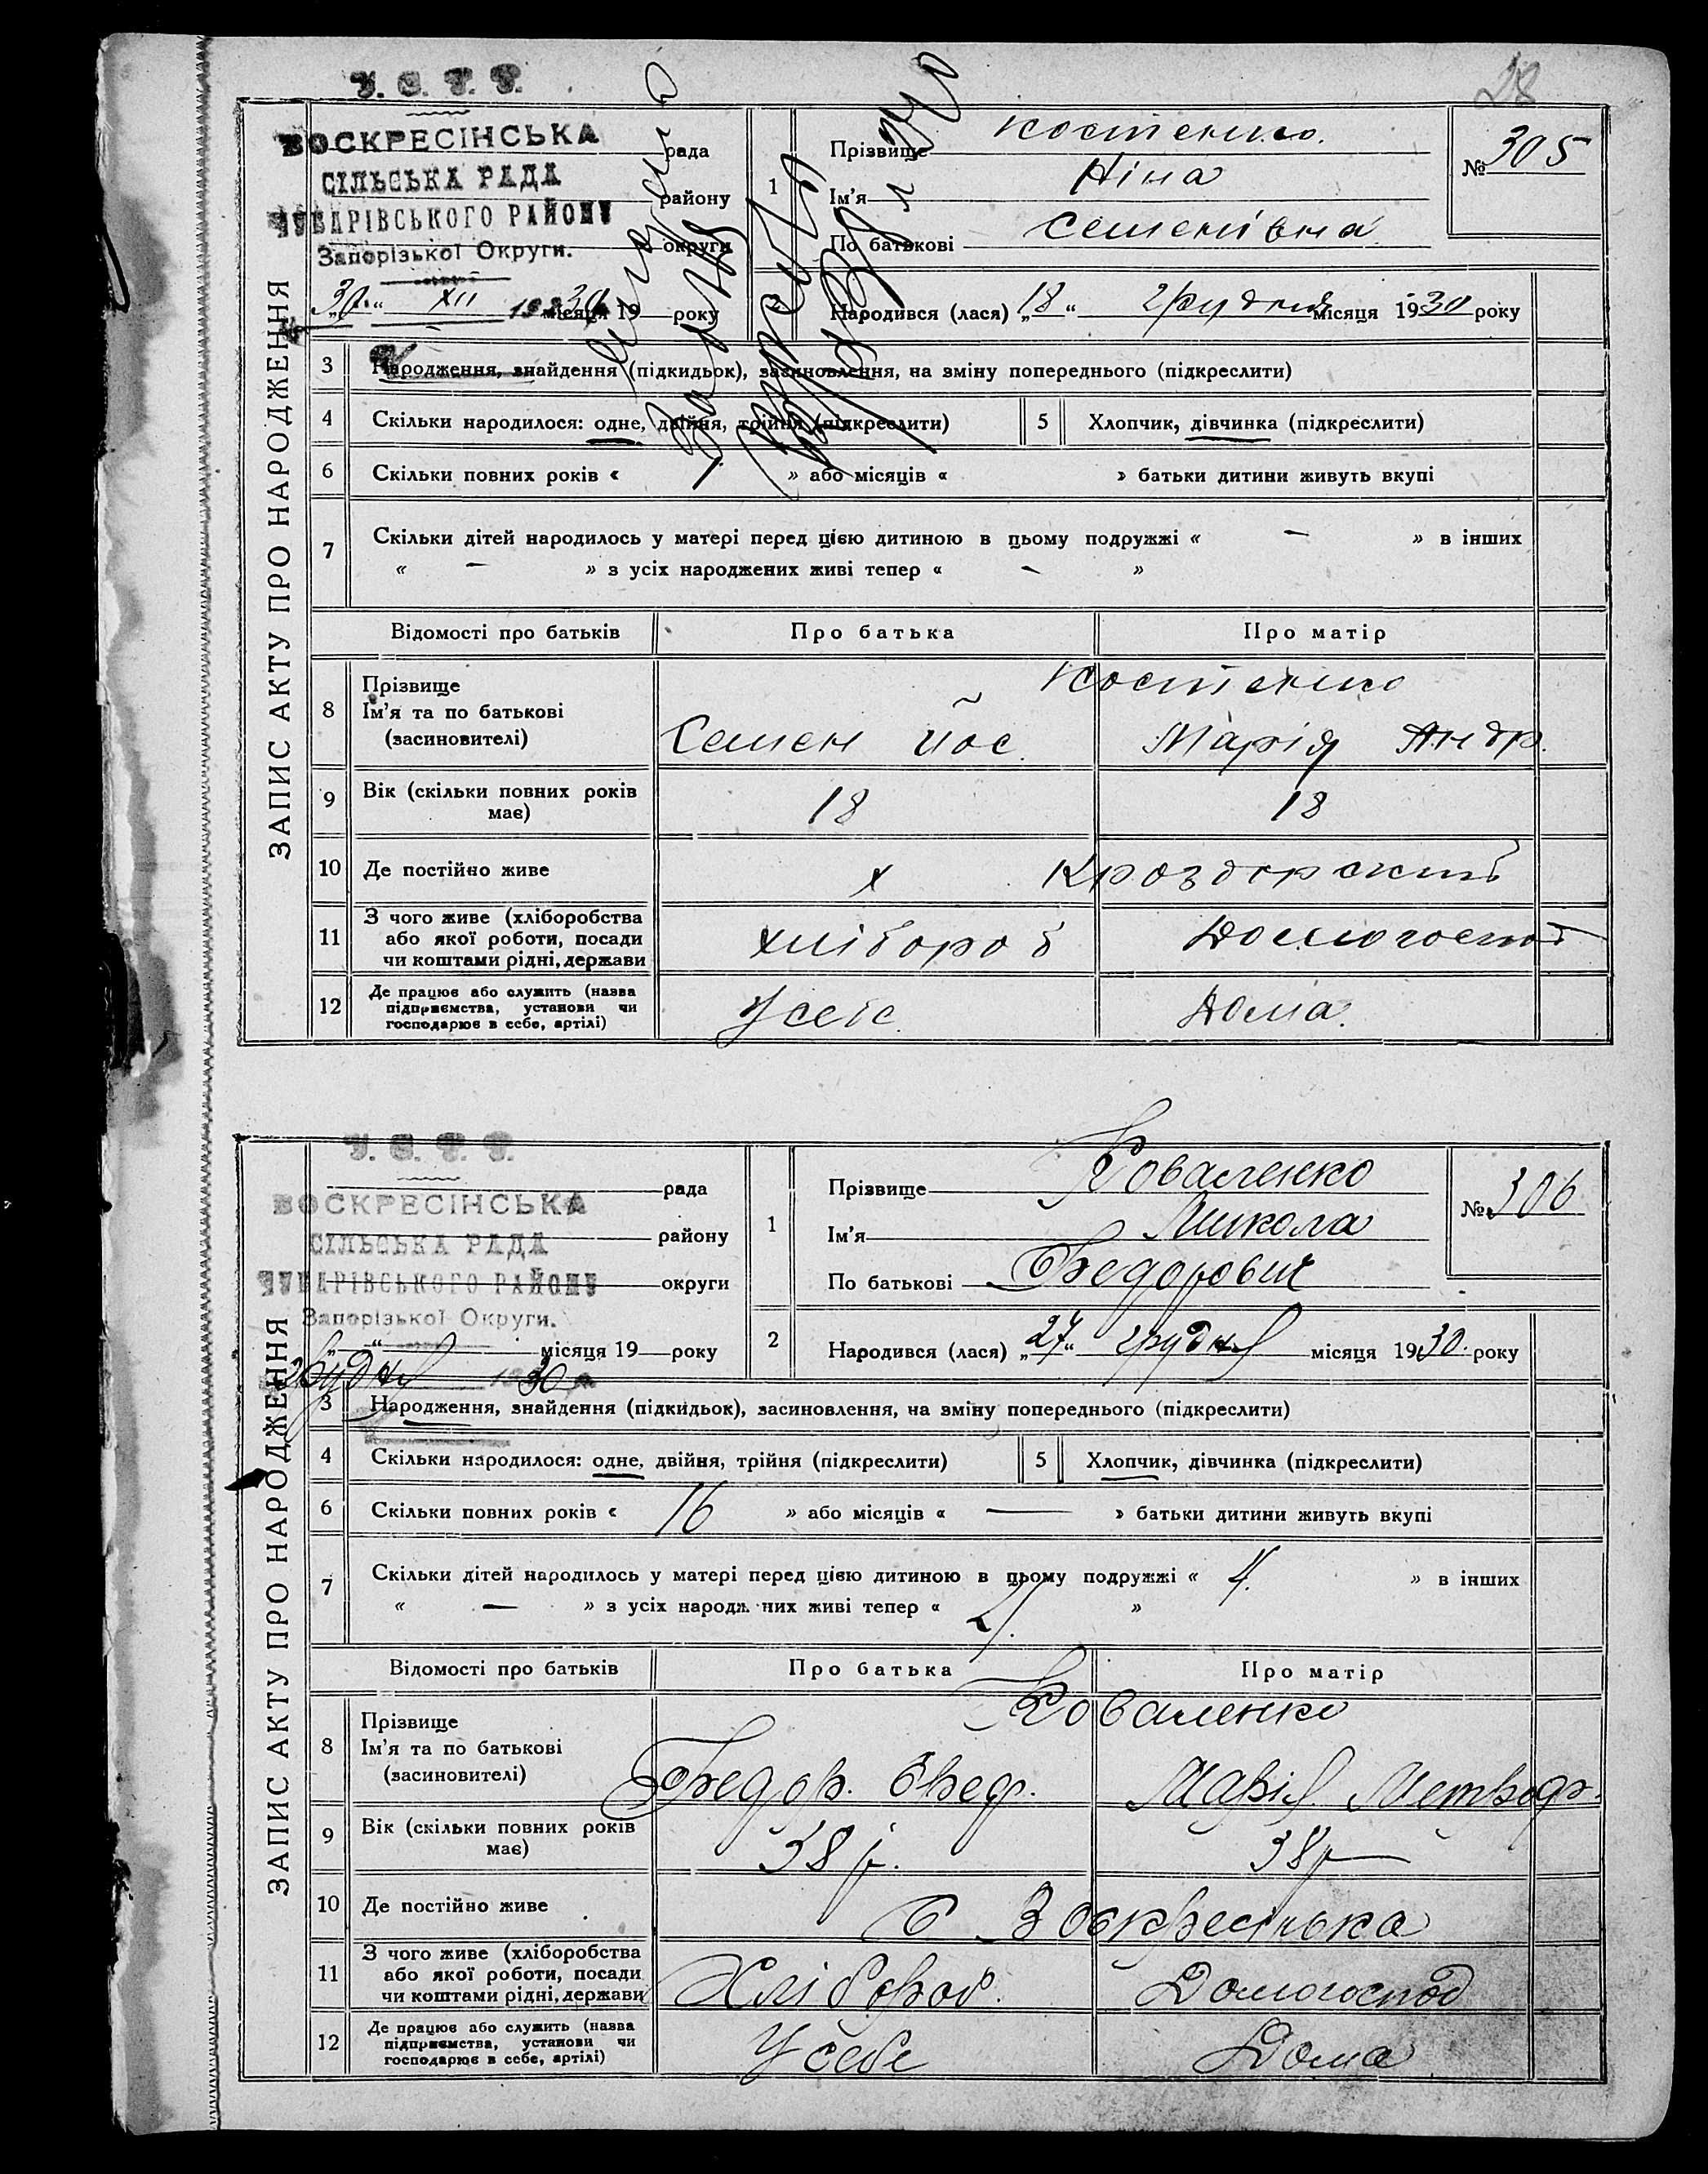 28
У. С. Р. Р.
ВОСКРЕСІНСЬКА
СІЛЬСЬКА РАДА
ЧУБАРІВСЬКОГО РАЙОНУ
Запорізької Округи.
рада
району
округи
30 XII 1930 місяця 19 року
ЗАПИС АКТУ ПРО НАРОДЖЕННЯ
1
Прізвище Костенко.
Ім'я Ніна
По батькові Семенівна
№ 305
2 Народився (лася) „18“ грудня місяця 1930 року
3 Народження, знайдення (підкидьок), засиновлення, на зміну попереднього (підкреслити)
4 Скільки народилося: одне, двійня, трійня (підкреслити) 5 Хлопчик, дівчинка (підкреслити)
6 Скільки повних років « 1 » або місяців « » батьки дитини живуть вкупі
7 Скільки дітей народилось у матері перед цією дитиною в цьому подружжі « — » в інших
« — » з усіх народжених живі тепер « - »
Відомості про батьків Про батька Про матір
8 Прізвище Костенко
Ім'я та по батькові
(засиновителі) Семен Йос. Марія Андр.
9 Вік (скільки повних років має) 18 18
10 Де постійно живе х
11 З чого живе (хліборобства
або якої роботи, посади
чи коштами рідні, держави хлібороб Домогоспод
12 Де працює або служить (назва
підприємства, установи чи
господарює в себе, артілі) У себе. Дома.
У. С. Р. Р.
ВОСКРЕСІНСЬКА
СІЛЬСЬКА РАДА
ЧУБАРІВСЬКОГО РАЙОНУ
Запорізької Округи.
рада
району
округи
„ “ місяця 19 року
грудня 30
ЗАПИС АКТУ ПРО НАРОДЖЕННЯ
1
Прізвище Коваленко
Ім'я Микола
По батькові Федорович
№ 306
2 Народився (лася) „27“ грудня місяця 1930. року
3 Народження, знайдення (підкидьок), засиновлення, на зміну попереднього (підкреслити)
4 Скільки народилося: одне, двійня, трійня (підкреслити) 5 Хлопчик, дівчинка (підкреслити)
6 Скільки повних років « 16 » або місяців « — » батьки дитини живуть вкупі
7 Скільки дітей народилось у матері перед цією дитиною в цьому подружжі « 4. » в інших
« — » з усіх народж них живі тепер « »
Відомості про батьків Про батька Про матір
8 Прізвище Коваленко
Ім'я та по батькові
(засиновителі) Федор. Фед. Марія Метроф.
9 Вік (скільки повних років має) 38 р. 38 р
10 Де постійно живе с Воскресінька
11 З чого живе (хліборобства
або якої роботи, посади
чи коштами рідні, держави Хлібороб. Домогоспод
12 Де працює або служить (назва
підприємства, установи чи
господарює в себе, артілі) У себе Дома